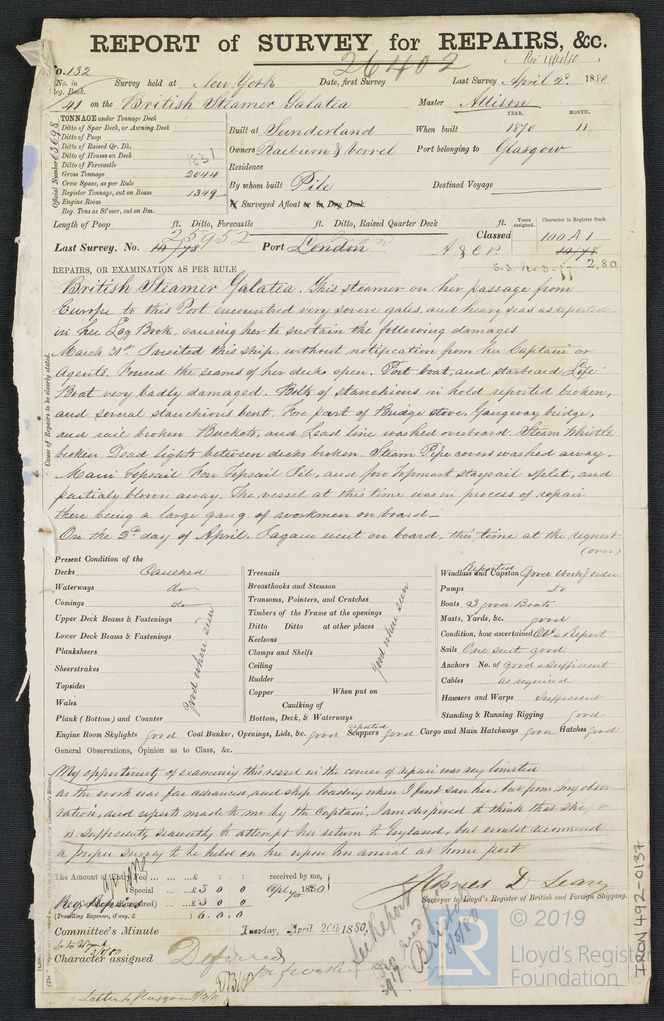 REPORT of SURVEY for REPAIRS, &c.
26402
No. 132
No. in Reg. Book. Survey held at New York Date, first Survey Last Survey April 2d 1880
41 on the British Steamer Galatea Master Allison
TONNAGE under Tonnage Deck
Ditto of Spar Deck, or Awning Deck
Ditto of Poop
Ditto of Raised Qr. Dk.
Ditto of Houses on Deck
Ditto of Forecastle
Gross Tonnage 2044
Crew Space, as per Rule
Register Tonnage, cut on Beam 1349
Engine Room
Reg. Tons as St'mer, cut on Bm.
Official Number
YEAR. MONTH.
Built at Sunderland When built 1870 11
Owners Raeburn & Verrel Port belonging to Glasgow
Residence
By whom built Pile Destined Voyage
Surveyed Afloat or in Dry Dock
Length of Poop ft. Ditto, Forecastle ft. Ditto, Raised Quarter Deck ft.
Years assigned. Character in Register Book.
Classed 100 A 1
25952
Last Survey, No. 10/78 Port London A & C P. 10/78
S.S. No 3-77 2,80
REPAIRS, OR EXAMINATION AS PER RULE
Cause of Repairs to be clearly stated.
British Steamer Galatea. This steamer on her passage from
Europe to this Port encountred very severe gales, and heavy seas as reported
in her Log Book. causing her to sustain the following damages
March 31st. I visited this ship without notification from her Captain or
Agents. Found the seams of her decks open. Port boat, and starboard Life
Boat very badly damaged. Bolts of stanchions in hold reported broken,
and several stanchions bent. Fore part of Bridge stove, Gangway bridge,
and rail broken Buckets, and Lead line washed overboard. Steam Whistle
broken Dead lights between decks broken. Steam Pipe covers washed away.
Main topsail Fore Topsail Jib, and fore topmast staysail split, and
partialy blown away. The vessel at this time was in process of repair
there being a large gang of workmen on board—
On the 2d day of April. I again went on board, this time at the request
(over)
Present Condition of the
Decks Caulked
Waterways do
Comings do
Upper Deck Beams & Fastenings
Lower Deck Beams & Fastenings
Planksheers
Sheerstrakes
Topsides
Wales
Plank (Bottom) and Counter
good where seen
Treenails
Breasthooks and Stemson
Transoms, Pointers, and Crutches
Timbers of the Frame at the openings
Ditto Ditto at other places
Keelsons
Clamps and Shelfs
Ceiling
Rudder
Copper When put on
Caulking of
Bottom, Deck, & Waterways
good where seen
Reported
Windlass and Capstan Good Work'g order
Pumps Do
Boats 3 good Boats
Masts, Yards, &c. good
Condition, how ascertained Obs & Report
Sails One suit good
Anchors No. of good & Sufficient
Cables as required
Hawsers and Warps Sufficient
Standing & Running Rigging good
Engine Room Skylights good Coal Bunker, Openings, Lids, &c. good reported Scuppers good Cargo and Main Hatchways good Hatches good
General Observations, Opinion as to Class, &c.
My opportunity of examining this vessel in the course of repair was very limited
as the work was far advanced, and ship loading when I first saw her, but from my obser
vation, and reports made to me by the Captain, I am disposed to think that she
is sufficiently seaworthy to attempt her return to England, but would recommend
a proper survey to be held on her upon her arrival at home port
The Amount of Entry Fee ... £ : : received by me,
Special ... £ 3 0 0 1880
£ 3 0 0
(Travelling Expenses, if any, £ ) 6. 0. 0
James D Leary
Surveyor to Lloyd's Register of British and Foreign Shipping.
Committee's Minute Tuesday, April 20th 1880.
Character assigned Deferred
See Report
Bristol
Letter to Glasgow
IRON 492-0137
© 2019
LR
Lloyd's Register
Foundation